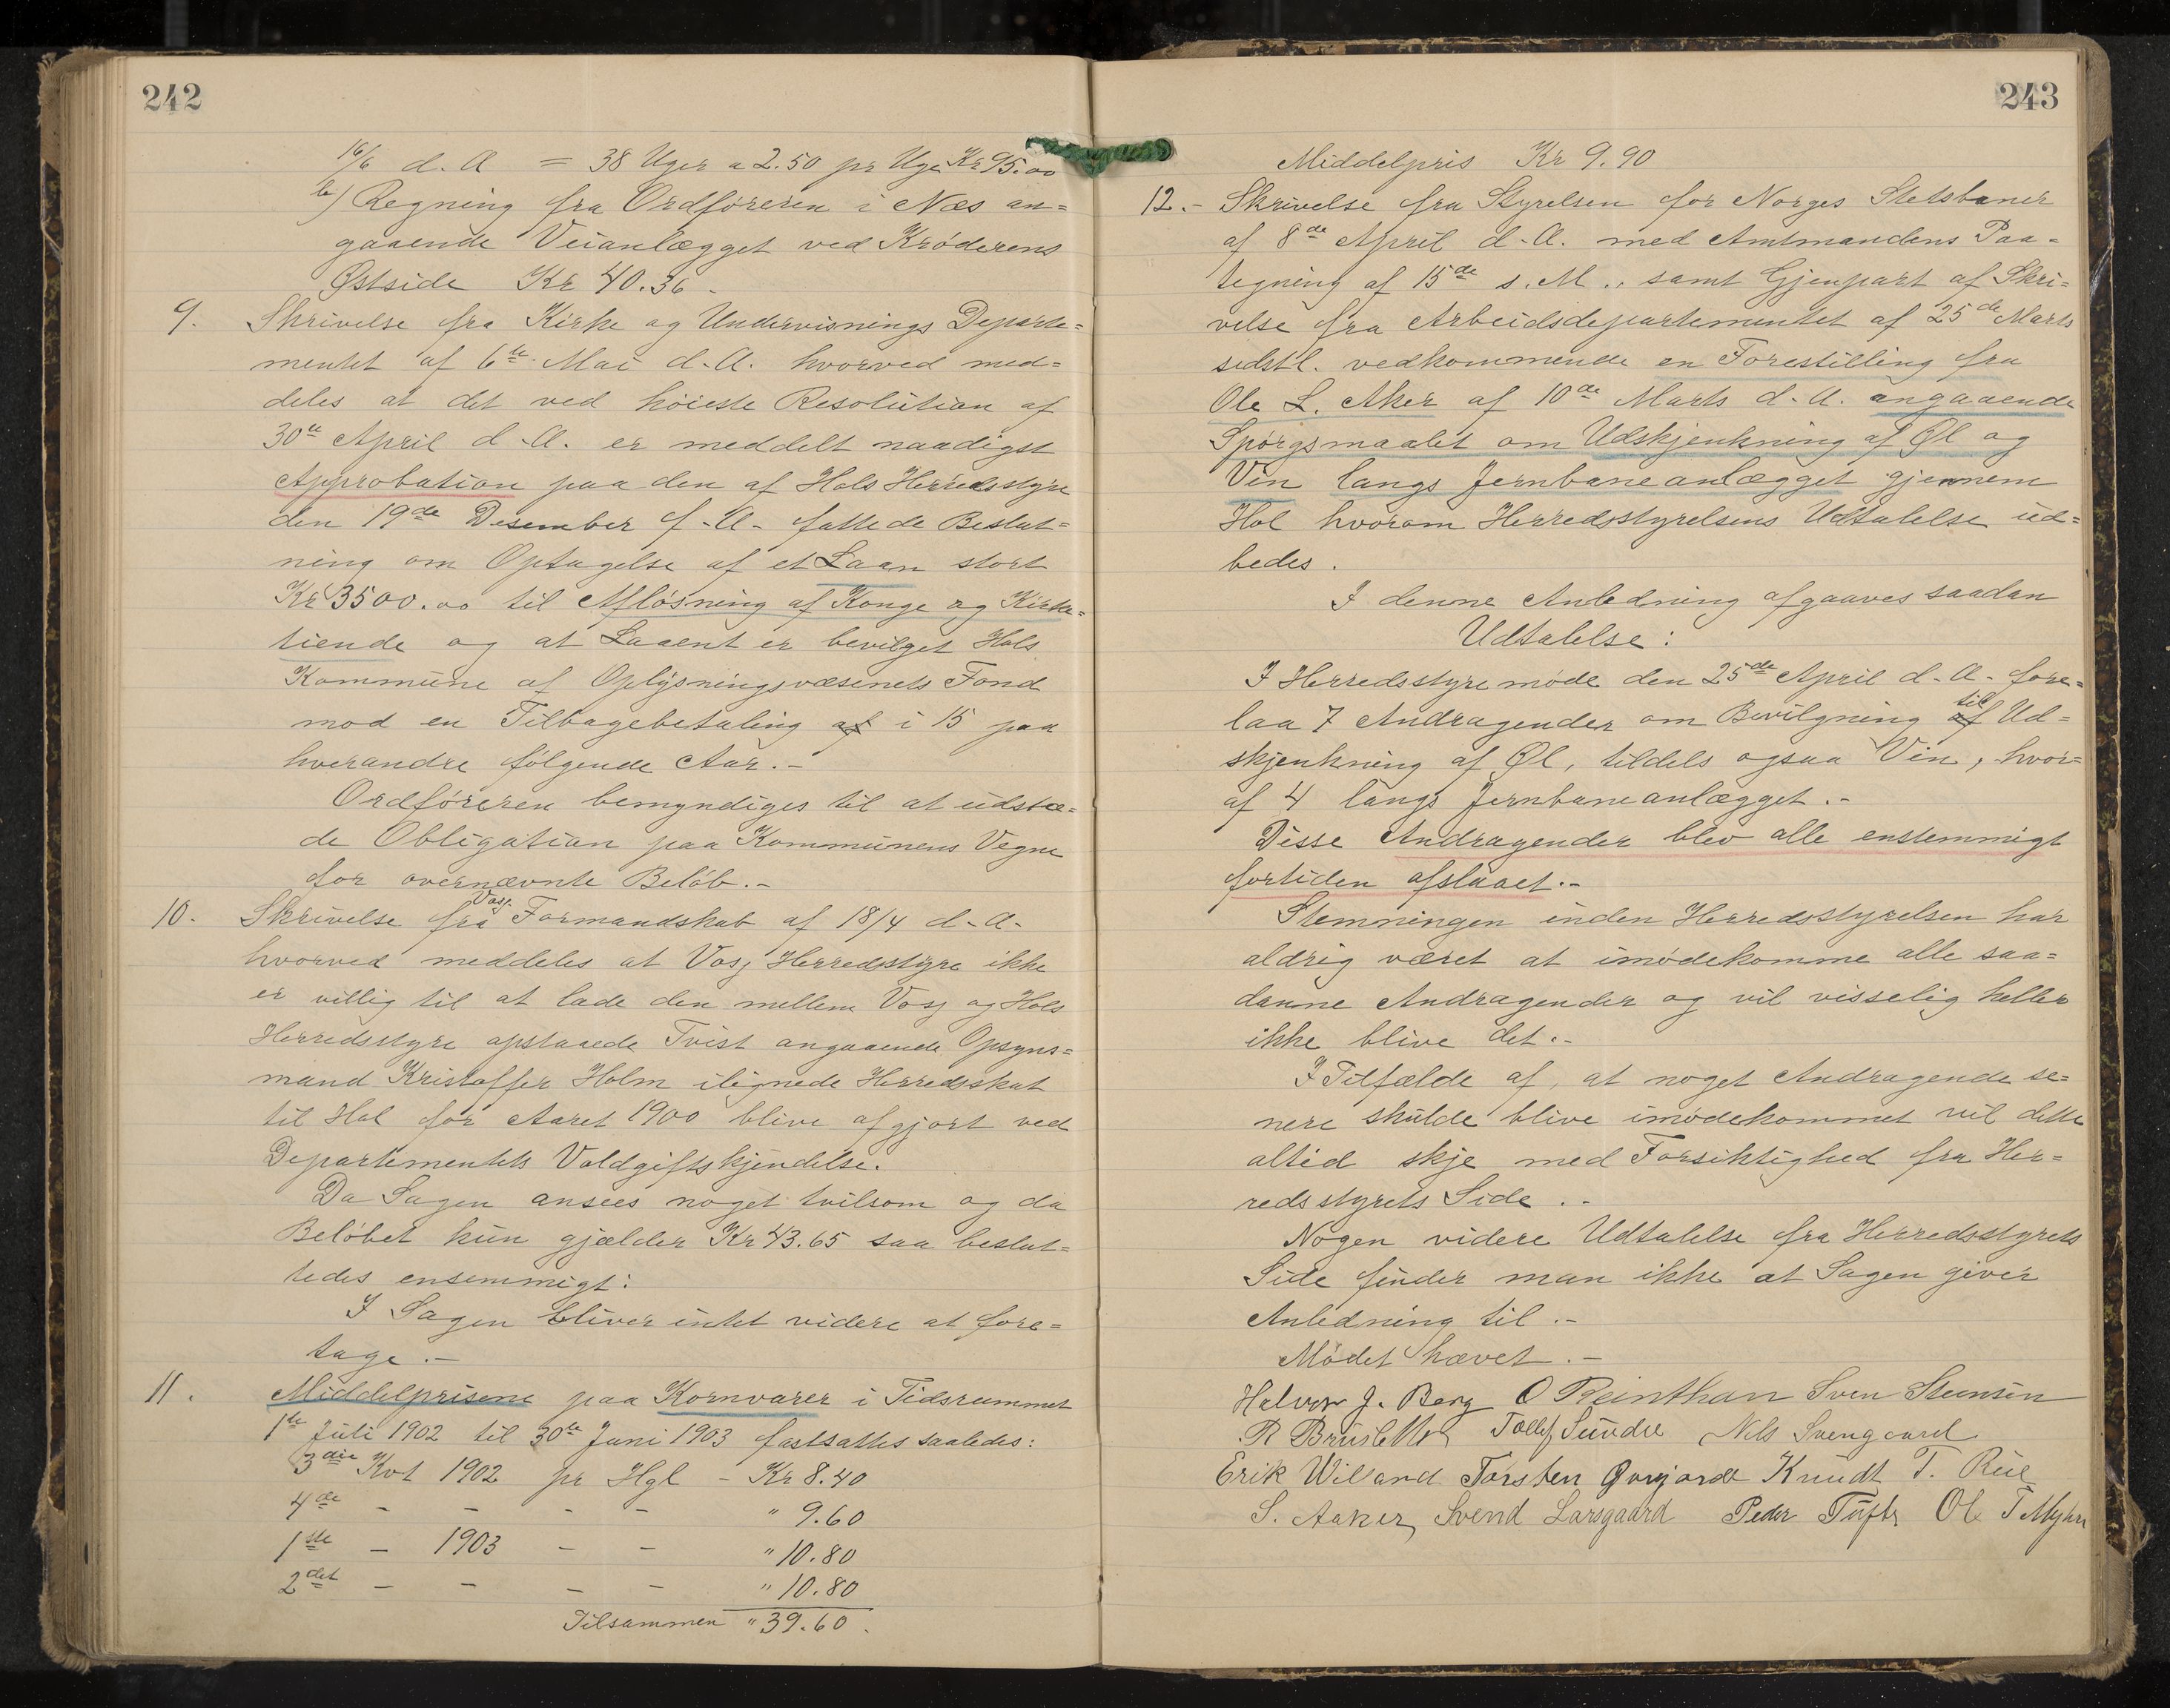 242
16/6 d. A = 38 Uger a 2.50 pr Uge Kr 95.00
b) Regning fra Ordføreren i Næs an=
gaaende Veianlægget ved Krøderens
Østside Kr 40.36 -
9. Skrivelse fra Kirke og Undervisnings Departe=
mentet af 6te Mai d.A. hvorved med=
deles at det ved høieste Resolution af
30te April d.A. er meddelt naadigst
Approbation paa den af Hols Herredsstyre
den 19de Desember f.A. fattede Beslut=
ning om Optagelse af et Laan stort
Kr 3500.00 til Afløsning af Konge og Kirke=
tiende og at Laaent er bevilget Hols
Kommune af Oplysningsvæsenets Fond
mod en Tilbagebetaling af i 15 paa
hverandre følgende Aar.-
Ordføreren bemyndiges til at udste=
de Obligation paa Kommunens Vegne
for overnævnte Beløb.-
10. Skrivelse fra Voss Formandskab af 18/4 d.A.
hvorved meddeles at Voss Herredsstyre ikke
er villig til at lade den mellem Voss og Hols
Herredsstyre opstaaede Tvist angaaende Opsyns=
mand Kristoffer Holm ilignede Herredsskat
til Hol for Aaret 1900 blive afgjort ved
Departementets Voldgiftskjendelse.
Da Sagen ansees noget tvilsom og da
Beløbet kun gjælder Kr 43.65 saa beslut=
tedes ensemmigt:
I Sagen bliver intet videre at fore=
tage.-
11. Middelprisene paa Kornvarer i Tidsrummet
1ste Juli 1902 til 30te Juni 1903 fastsattes saaledes:
3die Kvt 1902 pr Hgl - Kr 8.40
4de - - - - " 9.60
1ste - 1903 - - " 10.80
2det - - - - " 10.80
Tilsammen " 39.60.
243
Middelpris Kr 9.90
12.- Skrivelse fra Styrelsen for Norges Stetsbaner
af 8de April d.A. med Amtmandens Paa=
tegning af 15de s.M., samt Gjenpart af Skri=
velse fra Arbeidsdepartementet af 25de Marts
sidstl. vedkommende en Forestilling fra
Ole L. Aker af 10de Marts d.A. angaaende
Spørgsmaalet om Udskjenkning af Øl og
Vin langs Jernbaneanlægget gjennem
Hol hvorom Herredsstyrelsens Udtalelse ud=
bedes.
I denne Anledning afgaaves saadan
Udtalelse:
I Herredsstyremøde den 25de April d.A. fore=
laa 7 Andragender om Bevilgning af til Ud=
skjenkning af Øl, tildels ogsaa Vin, hvor=
af 4 langs Jernbaneanlægget.-
Disse Andragender blev alle enstemmigt
fortiden afslaaet.-
Stemningen inden Herredsstyrelsen har
aldrig været at imødekomme alle saa=
danne Andragender og vil visselig heller
ikke blive det.-
I Tilfælde af, at noget Andragende se=
nere skulde blive imødekommet vil dette
altid skje med Forsiktighed fra Her=
redsstyrets Side.-
Nogen videre Udtalelse fra Herredsstyrets
Side finder man ikke at Sagen giver
Anledning til.-
Mødet hævet.-
Halvor J. Berg O Reinthan Sven Stensen
Tollef Sundre Nils Svengaard
Erik Willand Torsten Knudt T.
S. Aaker, Svend Larsgaard Peder Tufte Ole T Myhre